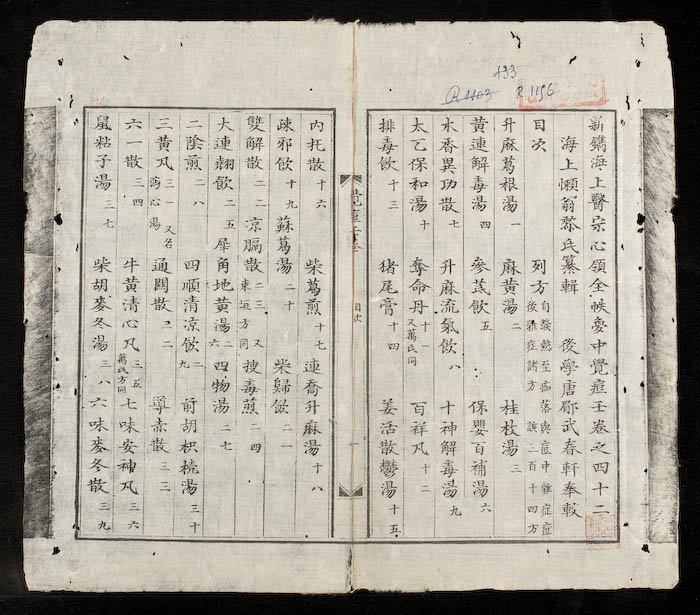 133
R 1103 R.1156
新鐫海上醫宗心領全帙夢中覺痘壬卷之四十二
海上懶翁黎氏纂輯 後學唐郿武春軒奉較
目次 列方 自發熱至痂落與痘中雜症痘後雜症諸方 該二百十四方
升麻葛根湯 一 麻黃湯 二 桂枝湯 三
黃連解毒湯 四 參芪飲 五 保嬰百補湯 六
木香異功散 七 升麻流氣飲 八 十神解毒湯 九
太乙保和湯 十 奪命丹 十一 又萬氏同 百祥丸 十二
排毒飲 十三 猪尾膏 十四 羌活散鬱湯 十五
目次
一
內托散 十六 柴葛煎 十七 連喬升麻湯 十八
疎邪飲 十九 蘇葛湯 二十 柴歸飲 二一
雙解散 二二 凉膈散 二三 又東垣方同 搜毒煎 二四
大連翹飲 二五 犀角地黃湯 二六 四物湯 二七
二陰煎 二八 四順清凉飲 二九 前胡枳橈湯 三十
三黃丸 三一 又名瀉心湯 通關散 三二 導赤散 三三
六一散 三四 牛黃清心丸 三五 萬氏方同 七味安神丸 三六
鼠粘子湯 三七 柴胡麥冬湯 三八 六味麥冬散 三九